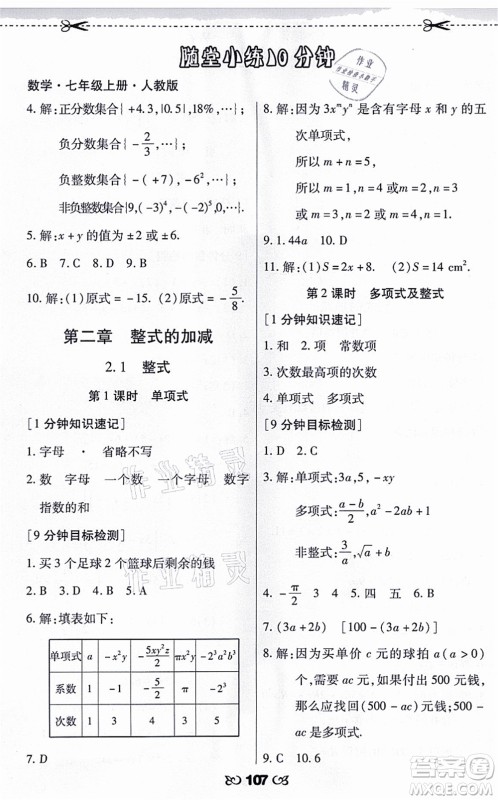 随堂小练10分钟
数学·七年级上册·人教版
4. 解:正分数集合{+4.3,|0.5|,18%,…};
负分数集合{-2/3,…};
负整数集合{-(+7),-6,…};
非负整数集合{9,(-3)⁴,-(-2)⁵,0,…}.
5. 解:x+y的值为±2或±6.
6. B 7. D 8. D 9. B
10. 解:(1)原式=-15. (2)原式=-5/8.
第二章 整式的加减
2.1 整式
第1课时 单项式
[1分钟知识速记]
1. 字母 · 省略不写
2. 数 字母 一个数 一个字母 数字
指数的和
[9分钟目标检测]
1. 买3个足球2个篮球后剩余的钱
2. B 3. D 4. A 5. B
6. 解:填表如下:
单项式 a -x²y -5xy²z/2 πx²y -2³a²b³
系数 1 -1 -5/2 π -2³
次数 1 3 4 3 5
7. D
8. 解:因为3xᵐyⁿ是含有字母x和y的五
次单项式,
所以m+n=5,
所以m=1,n=4或m=2,n=3或m=3,n=2或m=4,n=1.
9. 1.44a 10. D
11. 解:(1)S=2x+8. (2)S=14 cm².
第2课时 多项式及整式
[1分钟知识速记]
1. 和 2. 项 常数项
3. 次数最高项的次数
4. 单项式 多项式
[9分钟目标检测]
1. D 2. C
3. 解:单项式:3a,5,-xy
多项式:(a-b)/2,a²-2a-1
非整式:3/a,1/(x-y)
4. -π/2 3 5. 四 五 6. B
7. (3a+2b) [100-(3a+2b)]
8. 解:因为买单价a元的球拍a(a>0)
个,需要ac元,如果付出500元钱,
那么应找回(500-ac)元钱,
500-ac是多项式.
9. C 10. 6
107